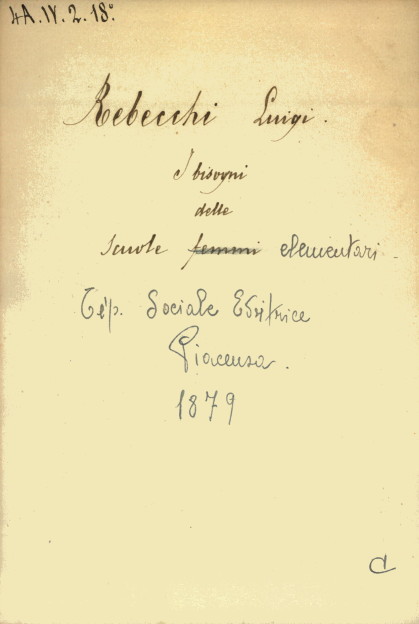 4A.IV.2.18°
Rebecchi Luigi.
I bisogni
delle
scuole femmi elementari.
Tip. Sociale Editrice
Piacenza.
1879